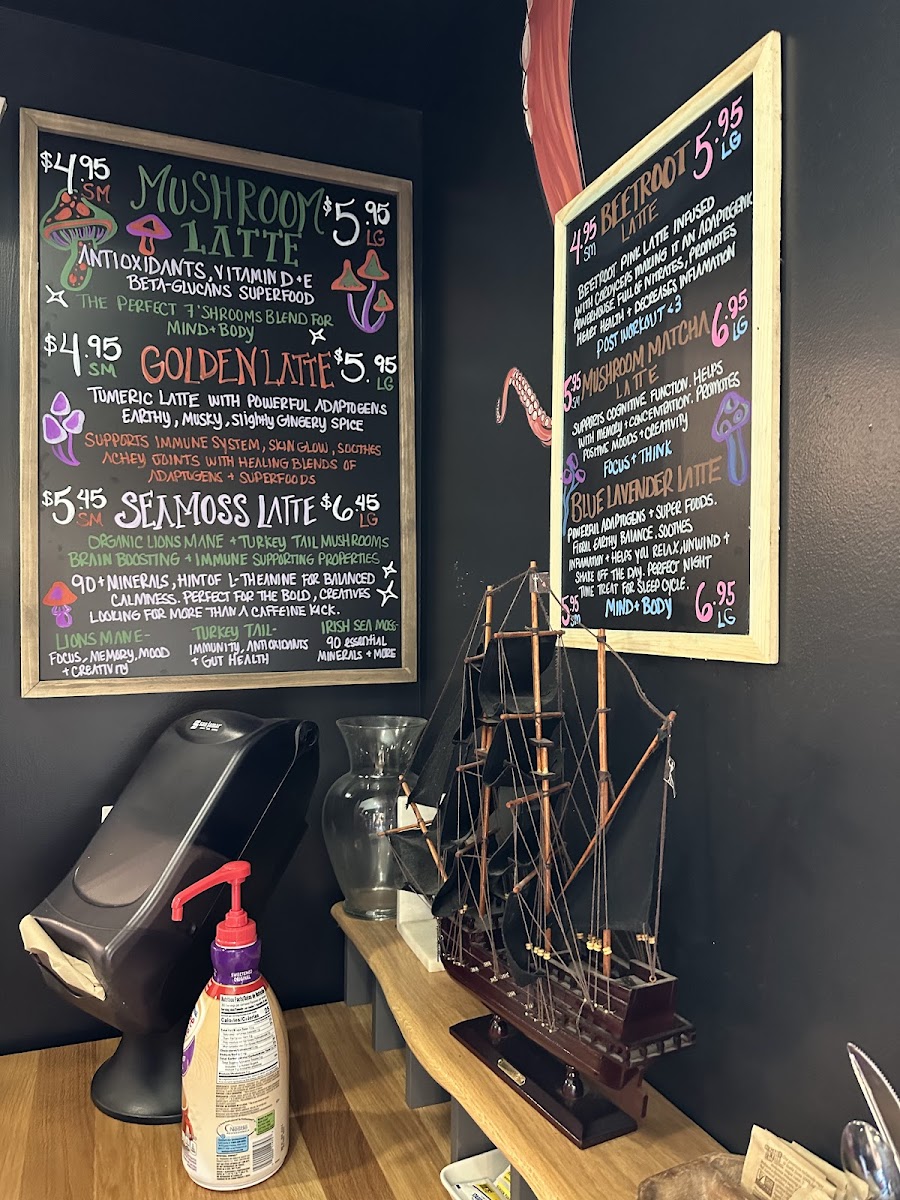 $4.95 SM
MUSHROOM
LATTE
$5.95 LG
ANTIOXIDANTS, VITAMIN D + E
BETA-GLUCANS SUPERFOOD
THE PERFECT 7 'SHROOMS BLEND FOR
MIND + BODY
$4.95 SM
GOLDEN LATTE
$5.95 LG
TUMERIC LATTE WITH POWERFUL ADAPTOGENS
EARTHY, MUSKY, SLIGHTLY GINGERY SPICE
SUPPORTS IMMUNE SYSTEM, SKIN GLOW, SOOTHES
ACHEY JOINTS WITH HEALING BLENDS OF
ADAPTOGENS + SUPERFOODS
$5.45 SM
SEAMOSS LATTE
$6.45 LG
ORGANIC LIONS MANE + TURKEY TAIL MUSHROOMS
BRAIN BOOSTING + IMMUNE SUPPORTING PROPERTIES
90+ MINERALS, HINT OF L-THEANINE FOR BALANCED
CALMNESS. PERFECT FOR THE BOLD, CREATIVES
LOOKING FOR MORE THAN A CAFFEINE KICK.
LIONS MANE-
FOCUS, MEMORY, MOOD
+ CREATIVITY
TURKEY TAIL-
IMMUNITY, ANTIOXIDANTS
+ GUT HEALTH
IRISH SEA MOSS-
90 essential
MINERALS + MORE
4.95 SM
BEETROOT
LATTE
5.95 LG
BEETROOT PINK LATTE INFUSED
WITH CORDYCEPS MAKING IT AN ADAPTOGENIC
POWERHOUSE FULL OF NITRATES, PROMOTES
HEART HEALTH + DECREASES INFLAMATION
POST WORKOUT <3
5.95 SM
MUSHROOM MATCHA
LATTE
6.95 LG
SUPPORTS COGNITIVE FUNCTION. HELPS
WITH MEMORY + CONCENTRATION. PROMOTES
POSITIVE MOODS + CREATIVITY
FOCUS + THINK
BLUE LAVENDER LATTE
POWERFUL ADAPTOGENS + SUPER FOODS.
FLORAL EARTHY BALANCE. SOOTHES
INFLAMATION + HELPS YOU RELAX, UNWIND +
SHAKE OFF THE DAY. PERFECT NIGHT
TIME TREAT FOR SLEEP CYCLE.
5.95 SM
MIND + BODY
6.95 LG
SWEETENED
ORIGINAL
Nutrition Facts
Calories/Calorías
Nestlé